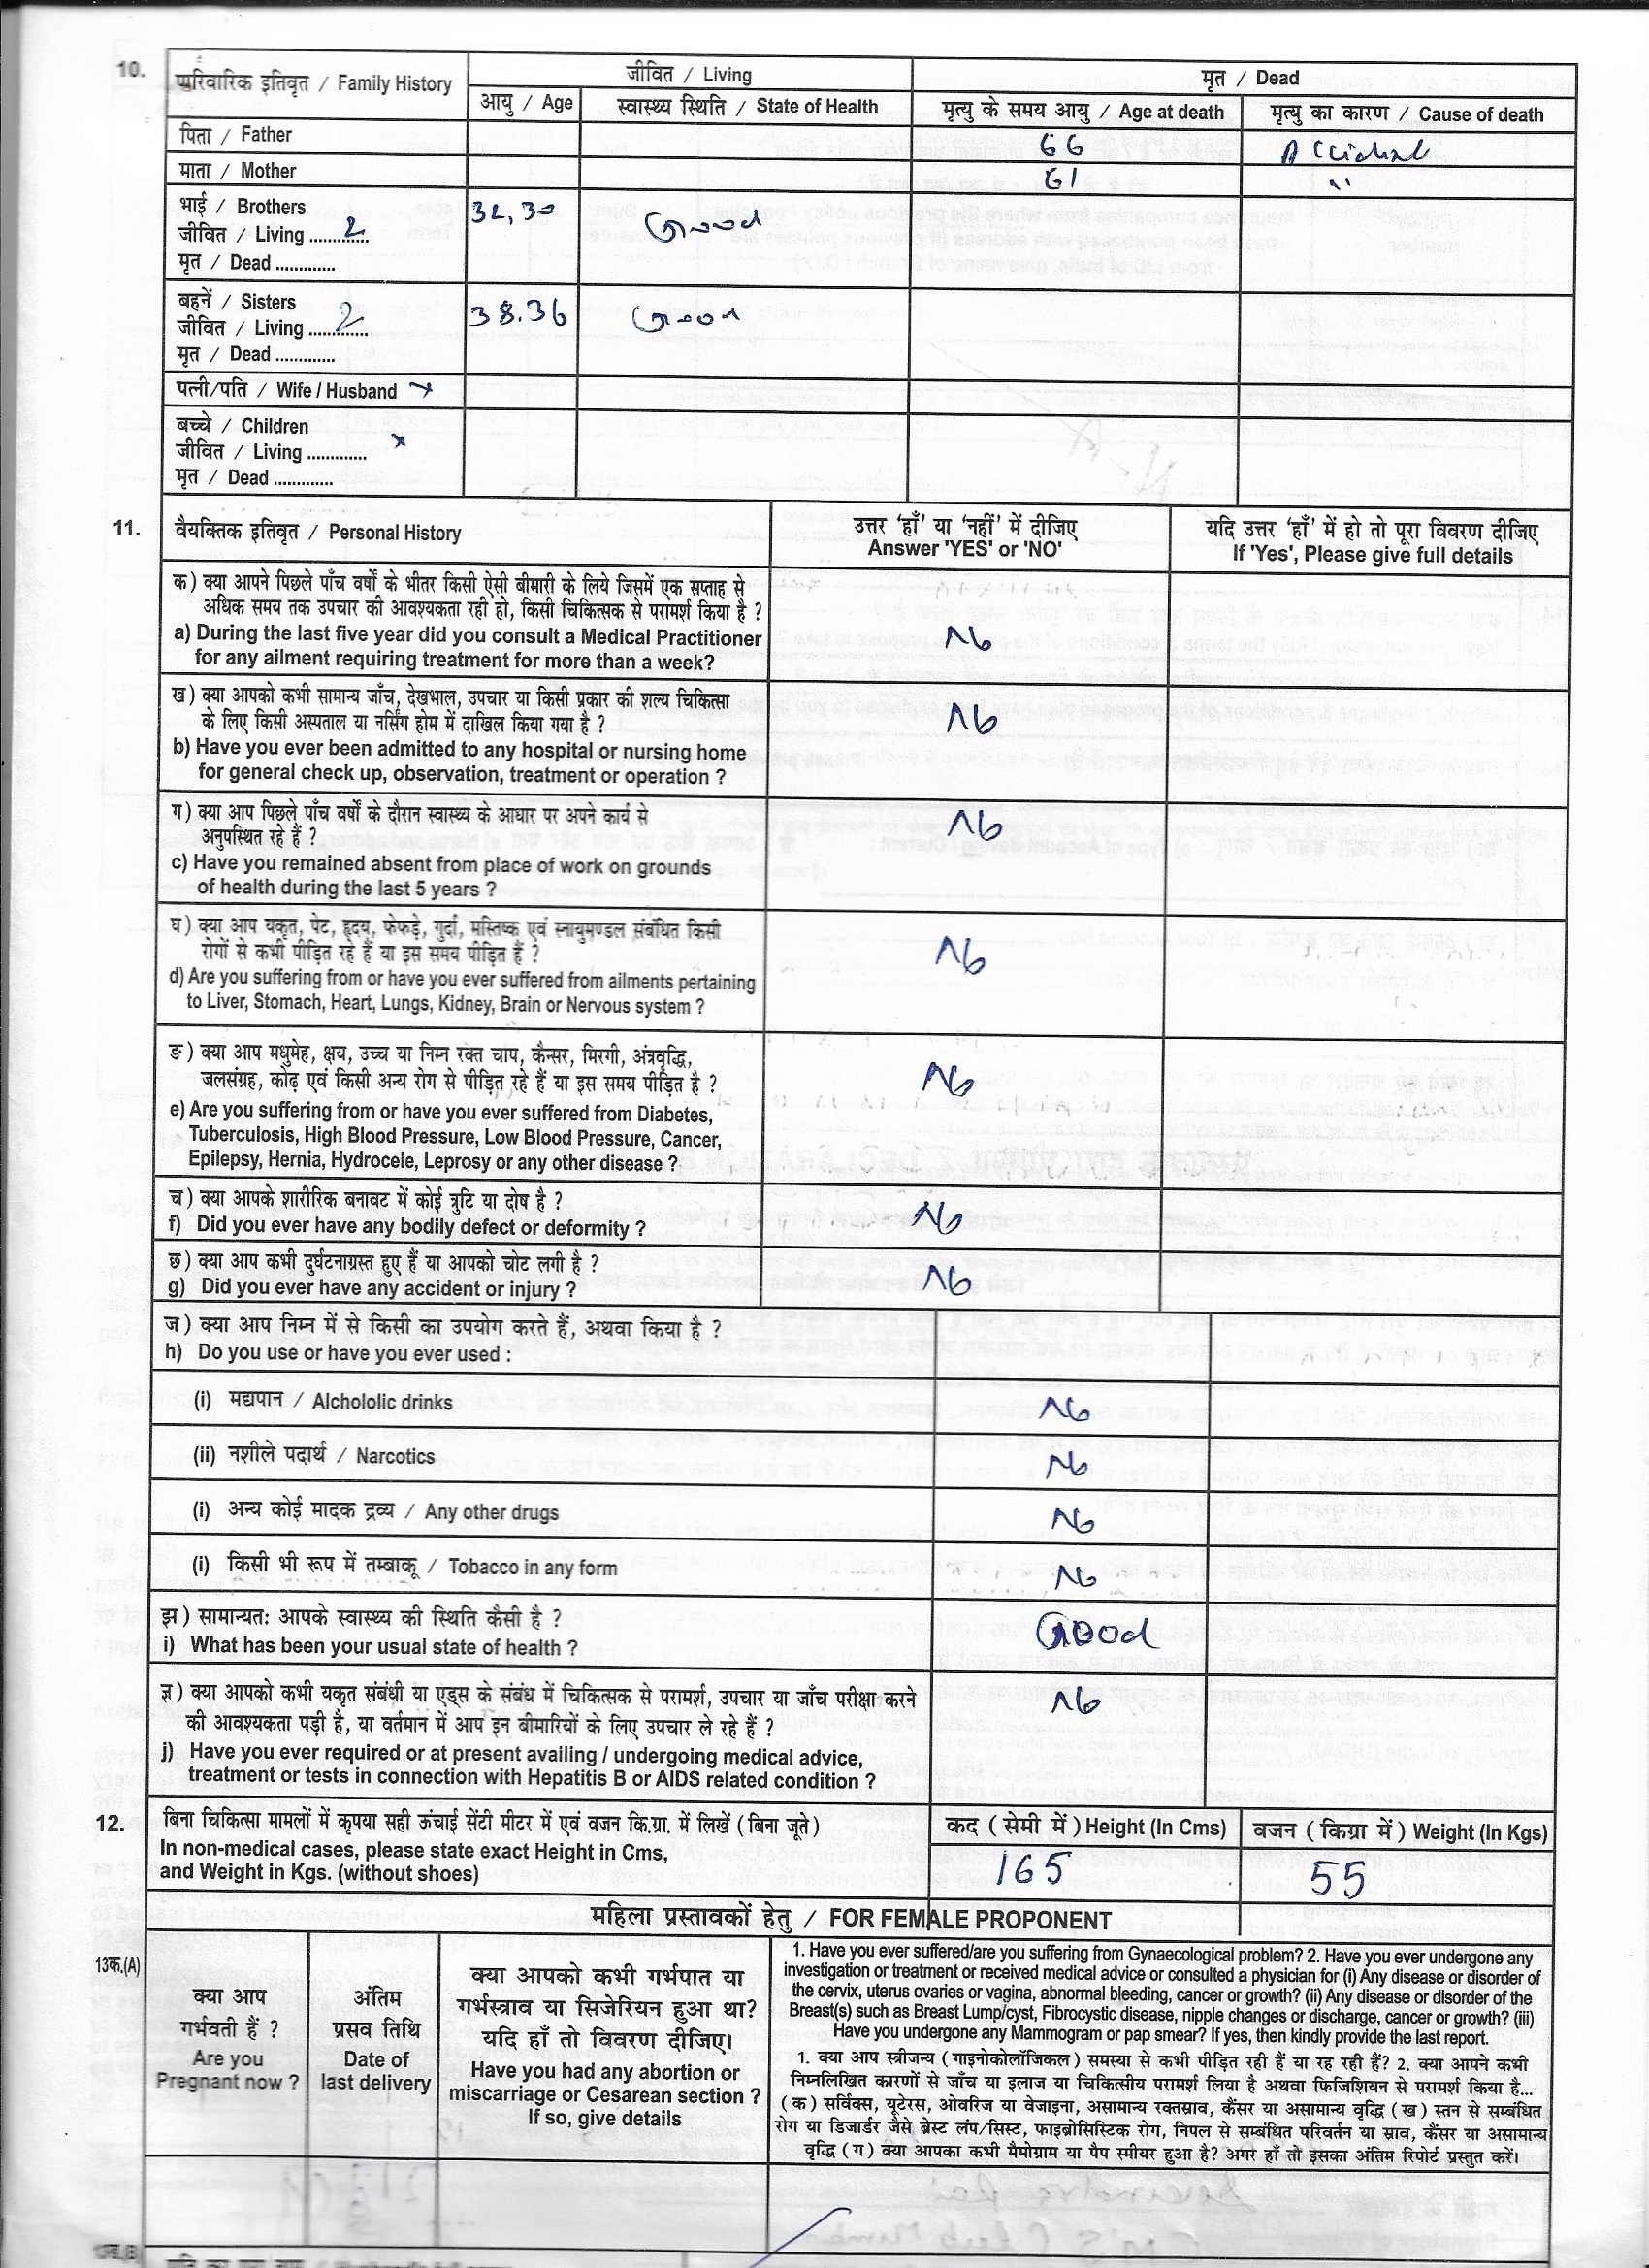 10.
पारिवारिक इतिवृत / Family History
जीवित / Living
मृत / Dead
आयु / Age
स्वास्थ्य स्थिति / State of Health
मृत्यु के समय आयु / Age at death
मृत्यु का कारण / Cause of death
पिता / Father
66
माता / Mother
61
"
भाई / Brothers
जीवित / Living ............ 2
मृत / Dead .............
32, 30
Good
बहनें / Sisters
जीवित / Living ............ 2
मृत / Dead .............
38.36
Good
पत्नी/पति / Wife / Husband ×
बच्चे / Children
जीवित / Living ............. ×
मृत / Dead .............
11.
वैयक्तिक इतिवृत / Personal History
उत्तर 'हाँ' या 'नहीं' में दीजिए
Answer 'YES' or 'NO'
यदि उत्तर 'हाँ' में हो तो पूरा विवरण दीजिए
If 'Yes', Please give full details
क) क्या आपने पिछले पाँच वर्षों के भीतर किसी ऐसी बीमारी के लिये जिसमें एक सप्ताह से
अधिक समय तक उपचार की आवश्यकता रही हो, किसी चिकित्सक से परामर्श किया है ?
a) During the last five year did you consult a Medical Practitioner
for any ailment requiring treatment for more than a week?
No
ख) क्या आपको कभी सामान्य जाँच, देखभाल, उपचार या किसी प्रकार की शल्य चिकित्सा
के लिए किसी अस्पताल या नर्सिंग होम में दाखिल किया गया है ?
b) Have you ever been admitted to any hospital or nursing home
for general check up, observation, treatment or operation ?
No
ग) क्या आप पिछले पाँच वर्षों के दौरान स्वास्थ्य के आधार पर अपने कार्य से
अनुपस्थित रहे हैं ?
c) Have you remained absent from place of work on grounds
of health during the last 5 years ?
No
घ) क्या आप यकृत, पेट, हृदय, फेफड़े, गुर्दा, मस्तिष्क एवं स्नायुमण्डल संबंधित किसी
रोगों से कभी पीड़ित रहे हैं या इस समय पीड़ित हैं ?
d) Are you suffering from or have you ever suffered from ailments pertaining
to Liver, Stomach, Heart, Lungs, Kidney, Brain or Nervous system ?
No
ङ) क्या आप मधुमेह, क्षय, उच्च या निम्न रक्त चाप, कैन्सर, मिरगी, अंत्रवृद्धि,
जलसंग्रह, कोढ़ एवं किसी अन्य रोग से पीड़ित रहे हैं या इस समय पीड़ित है ?
e) Are you suffering from or have you ever suffered from Diabetes,
Tuberculosis, High Blood Pressure, Low Blood Pressure, Cancer,
Epilepsy, Hernia, Hydrocele, Leprosy or any other disease ?
No
च) क्या आपके शारीरिक बनावट में कोई त्रुटि या दोष है ?
f) Did you ever have any bodily defect or deformity ?
No
छ) क्या आप कभी दुर्घटनाग्रस्त हुए हैं या आपको चोट लगी है ?
g) Did you ever have any accident or injury ?
No
ज) क्या आप निम्न में से किसी का उपयोग करते हैं, अथवा किया है ?
h) Do you use or have you ever used :
(i) मद्यपान / Alchololic drinks
No
(ii) नशीले पदार्थ / Narcotics
No
(i) अन्य कोई मादक द्रव्य / Any other drugs
No
(i) किसी भी रूप में तम्बाकू / Tobacco in any form
No
झ) सामान्यतः आपके स्वास्थ्य की स्थिति कैसी है ?
i) What has been your usual state of health ?
Good
ञ) क्या आपको कभी यकृत संबंधी या एड्स के संबंध में चिकित्सक से परामर्श, उपचार या जाँच परीक्षा करने
की आवश्यकता पड़ी है, या वर्तमान में आप इन बीमारियों के लिए उपचार ले रहे हैं ?
j) Have you ever required or at present availing / undergoing medical advice,
treatment or tests in connection with Hepatitis B or AIDS related condition ?
No
12.
बिना चिकित्सा मामलों में कृपया सही ऊंचाई सेंटी मीटर में एवं वजन कि.ग्रा. में लिखें (बिना जूते)
In non-medical cases, please state exact Height in Cms,
and Weight in Kgs. (without shoes)
कद (सेमी में) Height (In Cms)
वजन (किग्रा में) Weight (In Kgs)
165
55
महिला प्रस्तावकों हेतु / FOR FEMALE PROPONENT
13क.(A)
क्या आप
गर्भवती हैं ?
Are you
Pregnant now ?
अंतिम
प्रसव तिथि
Date of
last delivery
क्या आपको कभी गर्भपात या
गर्भस्त्राव या सिजेरियन हुआ था?
यदि हाँ तो विवरण दीजिए।
Have you had any abortion or
miscarriage or Cesarean section ?
If so, give details
1. Have you ever suffered/are you suffering from Gynaecological problem? 2. Have you ever undergone any
investigation or treatment or received medical advice or consulted a physician for (i) Any disease or disorder of
the cervix, uterus ovaries or vagina, abnormal bleeding, cancer or growth? (ii) Any disease or disorder of the
Breast(s) such as Breast Lump/cyst, Fibrocystic disease, nipple changes or discharge, cancer or growth? (iii)
Have you undergone any Mammogram or pap smear? If yes, then kindly provide the last report.
1. क्या आप स्त्रीजन्य (गाइनोकोलॉजिकल) समस्या से कभी पीड़ित रही हैं या रह रही हैं? 2. क्या आपने कभी
निम्नलिखित कारणों से जाँच या इलाज या चिकित्सीय परामर्श लिया है अथवा फिजिशियन से परामर्श किया है...
(क) सर्विक्स, यूटेरस, ओवरिज या वेजाइना, असामान्य रक्तस्राव, कैंसर या असामान्य वृद्धि (ख) स्तन से सम्बंधित
रोग या डिजार्डर जैसे ब्रेस्ट लंप/सिस्ट, फाइब्रोसिस्टिक रोग, निपल से सम्बंधित परिवर्तन या स्राव, कैंसर या असामान्य
वृद्धि (ग) क्या आपका कभी मैमोग्राम या पैप स्मीयर हुआ है? अगर हाँ तो इसका अंतिम रिपोर्ट प्रस्तुत करें।